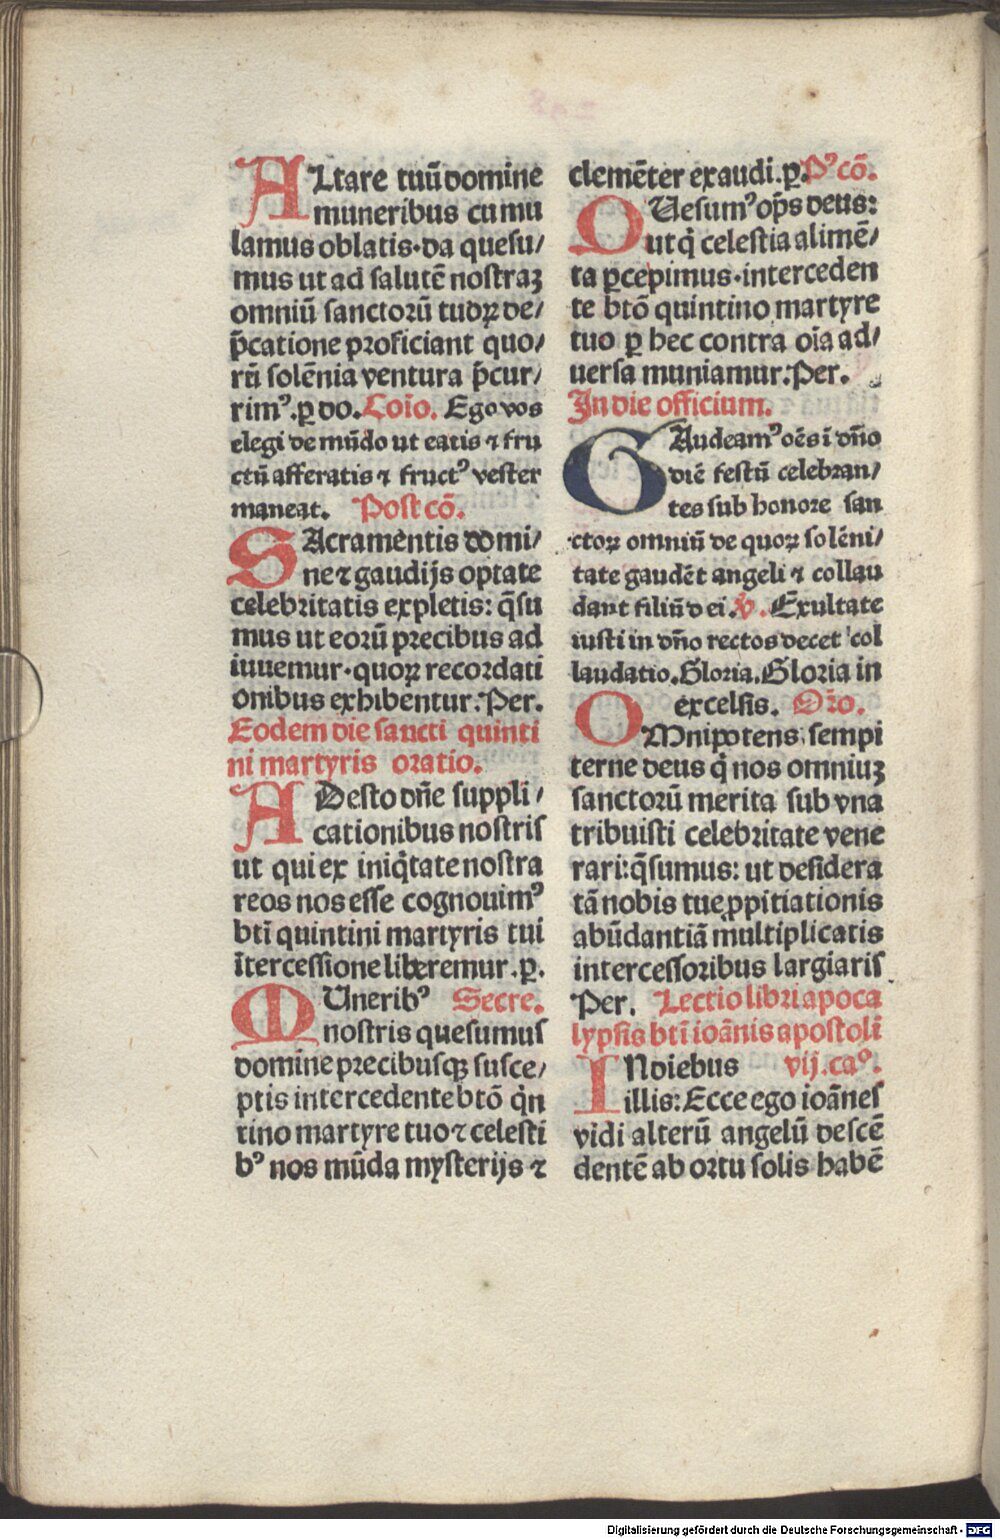 ALtare tuū domine
muneribus cumu
lamus oblatis·da quesu/
mus ut ad salutē nostraꝫ
omniū sanctorū tuoꝝ de/
p̄catione proficiant quo/
rū solēnia ventura p̄cur/
rimꝰ.ꝑ do. Coīo. Ego vos
elegi de mūdo ut eatis ⁊ fru
ctū afferatis ⁊ fructꝰ vester
maneat. Post cō.
SAcramentis domi/
ne ⁊ gaudijs optate
celebritatis expletis: q̄su
mus ut eorū precibus ad
iuuemur·quoꝝ recordati
onibus exhibentur:Per.
Eodem die sancti quinti
ni martyris oratio.
ADesto dn̄e suppli/
cationibus nostris
ut qui ex iniq̇tate nostra
reos nos esse cognouimꝰ
btī quintini martyris tui
ītercessione liberemur.ꝑ.
MUneribꝰ Secre.
nostris quesumus
domine precibusqꝫ susce/
ptis intercedente btō q̇n
tino martyre tuo ⁊ celesti
bꝰ nos mūda mysterijs ⁊
clemēter exaudi.ꝑ. Pꝰ cō.
QUesumꝰ op̄s deus:
ut q̇ celestia alimē/
ta ꝑcepimus·interceden
te btō quintino martyre
tuo ꝑ hec contra oīa ad/
uersa muniamur:Per.
In die officium.
GAudeamꝰ oēs ī dn̄o
diē festū celebran/
tes sub honore san
ctoꝝ omniū de quoꝝ solēni/
tate gaudēt angeli ⁊ collau
dant filiū dei. v̄. Exultate
iusti in dn̄o rectos decet col
laudatio. Gloria. Gloria in
excelsis. Oro.
OMnipotens sempi
terne deus q̇ nos omniuꝫ
sanctorū merita sub vna
tribuisti celebritate vene
rari:q̄sumus: ut desidera
tā nobis tue ꝓpitiationis
abūdantiā multiplicatis
intercessoribus largiaris
Per. Lectio libri apoca
lypsis btī ioānis apostoli
IN diebus vij.caº.
illis: Ecce ego ioānes
vidi alterū angelū descē
dentē ab ortu solis habē
Digitalisierung gefördert durch die Deutsche Forschungsgemeinschaft - DFG